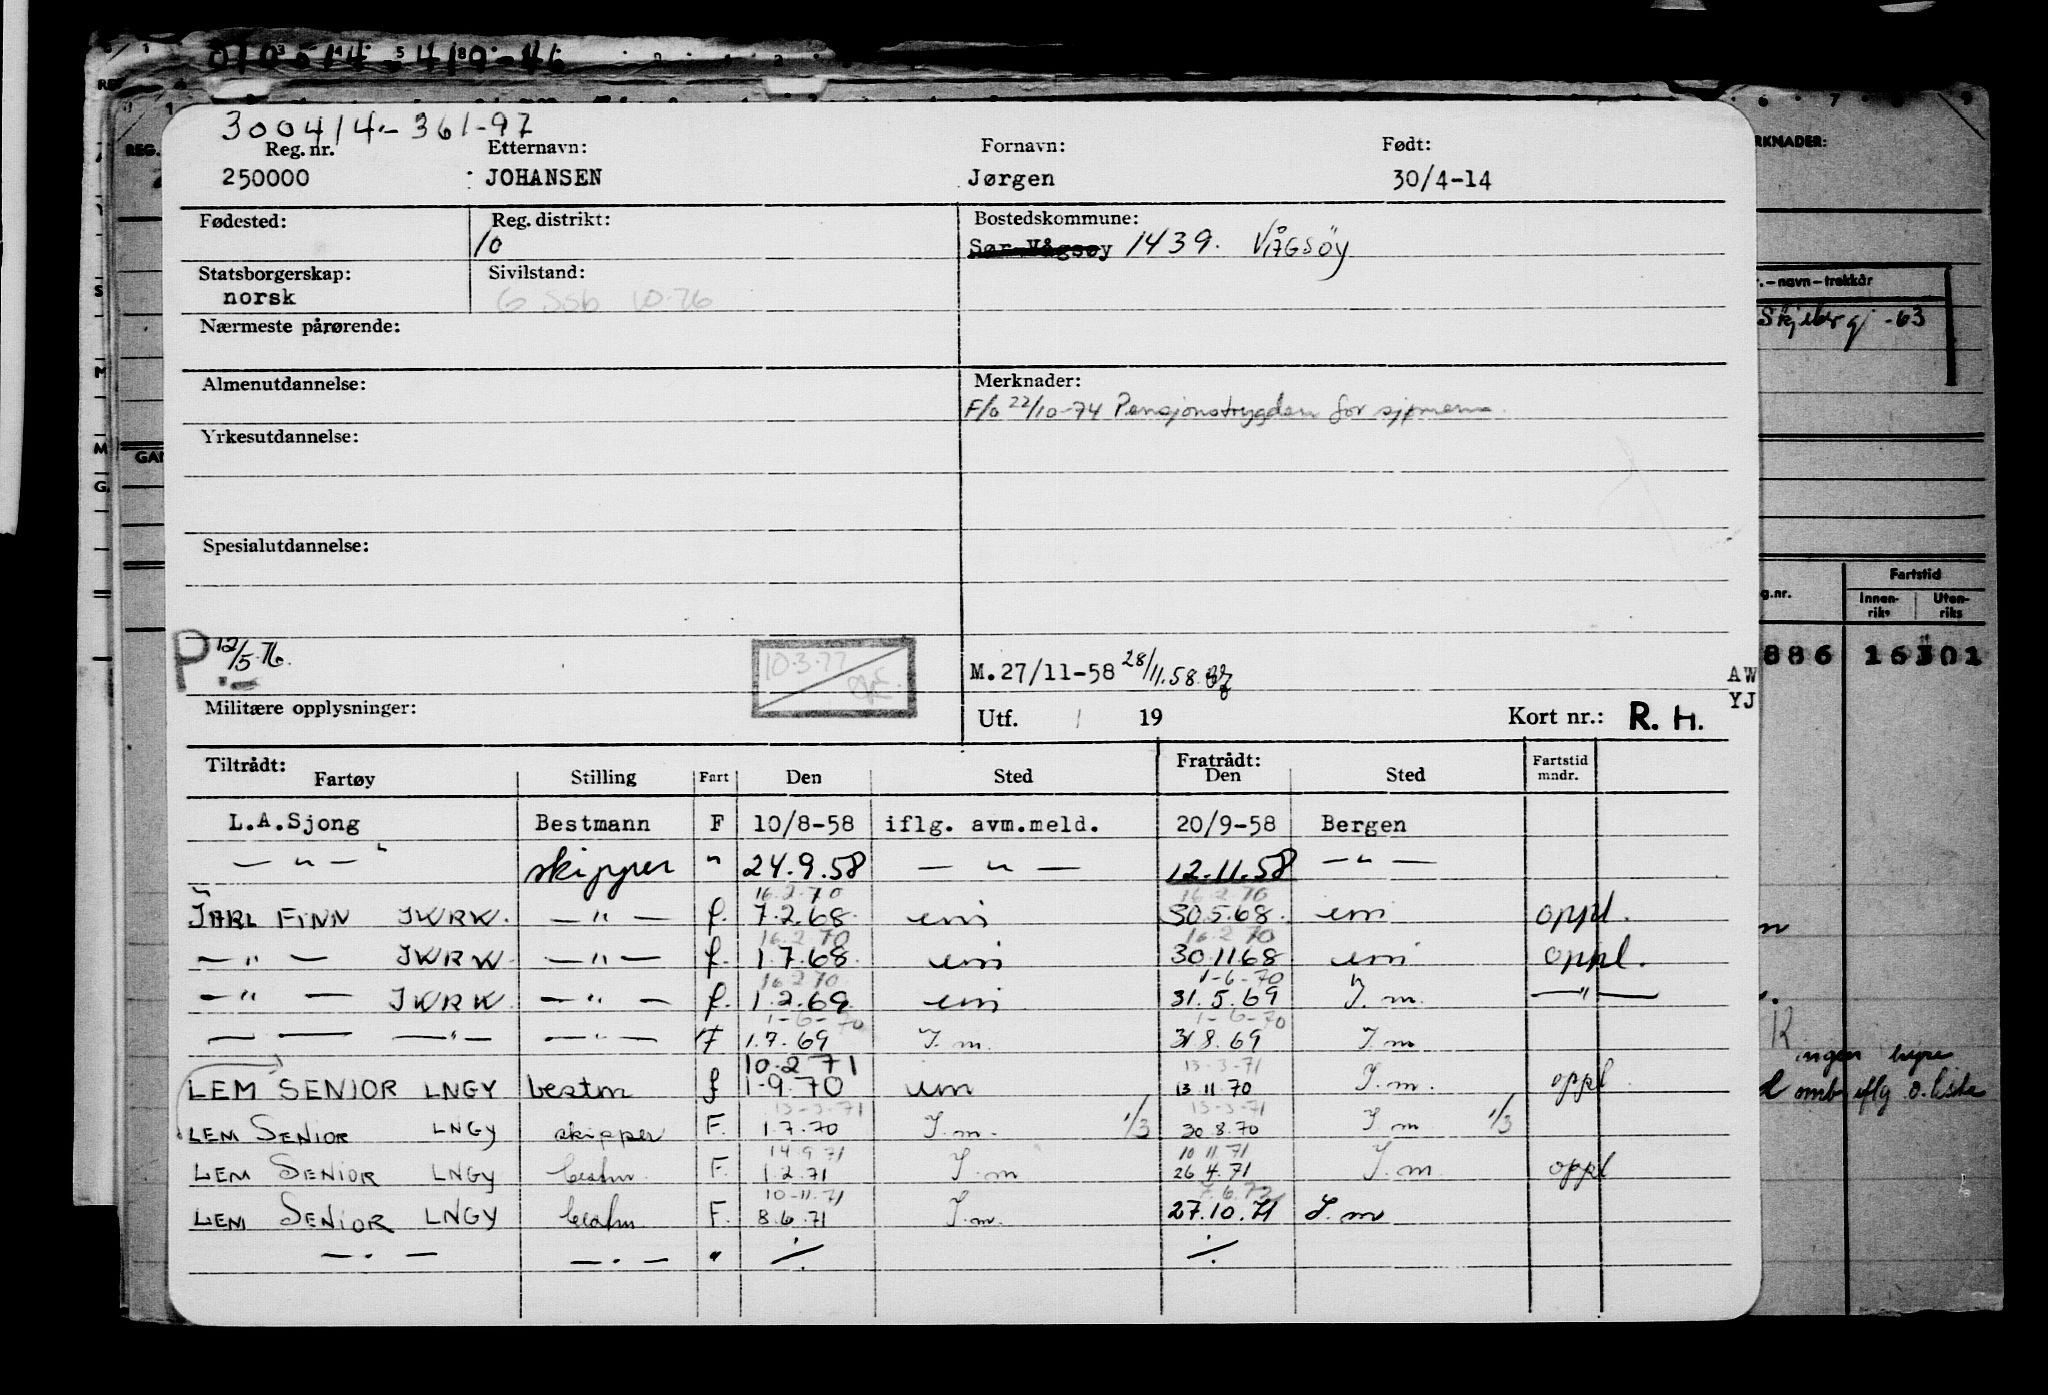 010514-41046
300414-361-97
Reg. nr. Etternavn: Fornavn: Født:
250000 JOHANSEN Jørgen 30/4-14
Fødested: Reg. distrikt: Bostedskommune:
10 Sør-Vågsøy 1439. VÅGSØY
Statsborgerskap: Sivilstand:
norsk G SSB 10-76
Nærmeste pårørende:
Almenutdannelse: Merknader:
F/o 22/10-74 Pensjonstrygden for sjømenn
Yrkesutdannelse:
Spesialutdannelse:
P 12/5.76. 10.3.77 M.27/11-58 28/11.58
Militære opplysninger: Utf. / 19 Kort nr.: R. H.
Tiltrådt: Fratrådt:
Fartøy Stilling Fart Den Sted Den Sted Fartstid mndr.
L.A.Sjong Bestmann F 10/8-58 iflg. avm.meld. 20/9-58 Bergen
— " — skipper " 24.9.58 — " — 12.11.58 — " —
16.2.70 16.2.70
JARL FINN JWRW. — " — f. 7.2.68. 30.5.68. oppl.
16.2.70 16.2.70
— " — JWRW — " — f. 1.7.68. 30.11.68 oppl.
16.2.70 1-6-70
— " — JWRW. — " — f. 1.2.69. 31.5.69 I.m. — " —
1-6-70 1-6-70
— — — " — — " — F 1.7.69 I.m. 31.8.69 I.m
10.2 71 13-3-71
LEM SENIOR LNGY bestm f 1-9.70 13.11.70 I.m. oppl.
13-3-71 13-3-71
LEM SENIOR LNGY skipper F. 1.7.70 I.m. 1/3 30.8.70 I.m 1/3
14.9.71 10.11.71
LEM SENIOR LNGY bestm. F. 1.2.71 I.m 26.4.71 I.m. oppl
10-11.71 7.6.72
LEM SENIOR LNGY bestm F. 8.6.71 I.m. 27.10.71 I.m
— . — — . — " ÷ ÷
RKNADER:
r. – navn – trekkår
Skjeberg -63
g.nr. Fartstid
Innen-riks Uten-riks
886 16 301
AW
YJ
ingen hyre